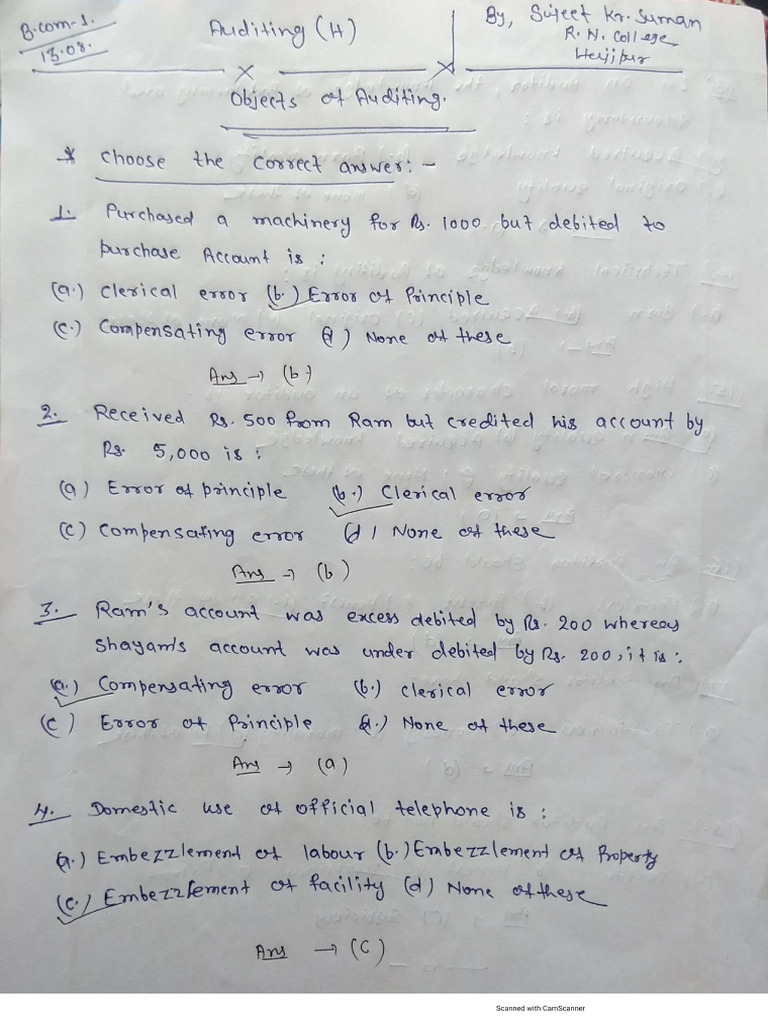 B.com-1.
13.08.
Auditing (H)
By, Sujeet Kr. Suman
R. N. College
Hajipur
Objects of Auditing.
* Choose the correct answer: -
1. Purchased a machinery for Rs. 1000 but debited to
purchase Account is :
(a.) Clerical error (b.) Error of Principle
(c.) Compensating error (d) None of these
Ans → (b)
2. Received Rs. 500 from Ram but credited his account by
Rs. 5,000 is :
(a) Error of principle (b.) Clerical error
(c) Compensating error (d) None of these
Ans → (b)
3. Ram's account was excess debited by Rs. 200 whereas
Shayam's account was under debited by Rs. 200, it is :
(a.) Compensating error (b.) Clerical error
(c) Error of Principle (d.) None of these
Ans → (a)
4. Domestic use of official telephone is :
(a.) Embezzlement of labour (b.) Embezzlement of Property
(c.) Embezzlement of facility (d) None of these
Ans → (c)
Scanned with CamScanner